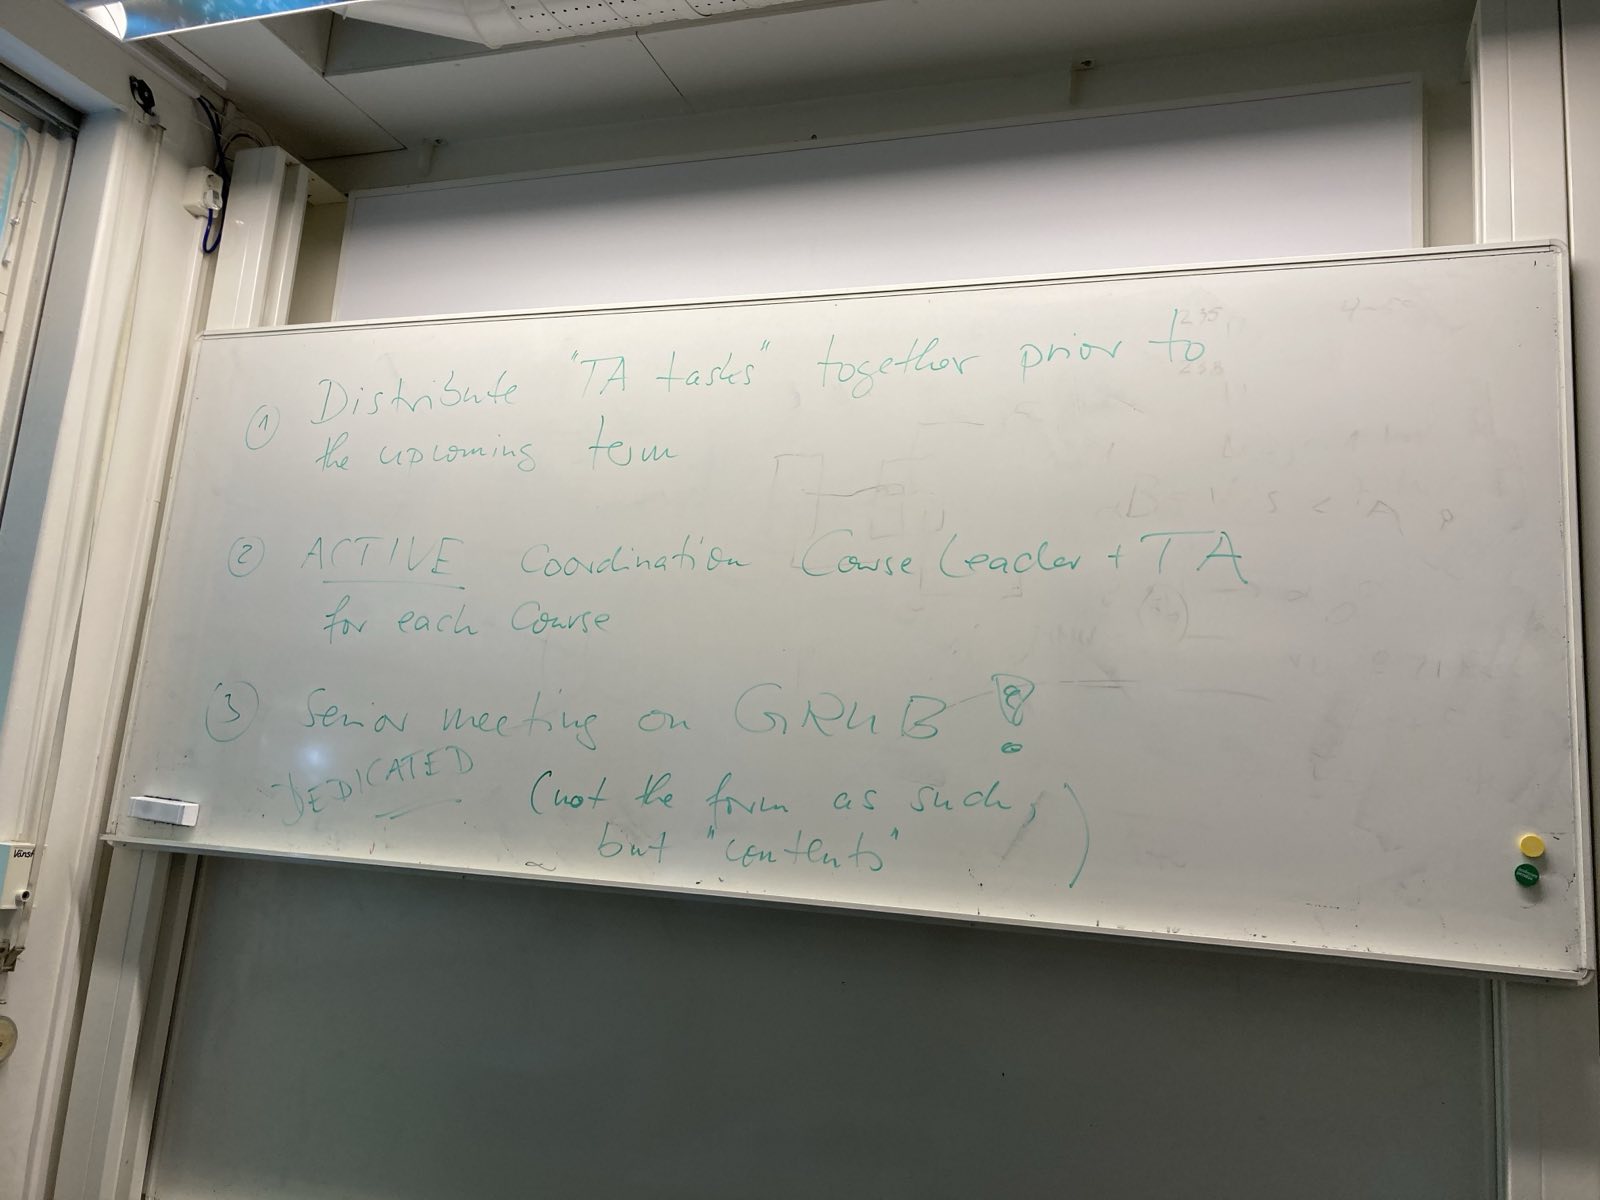 ① Distribute "TA tasks" together prior to
the upcoming term
② ACTIVE Coordination Course Leader + TA
for each Course
③ Senior meeting on GRUB !
DEDICATED (not the form as such,
but "contents" )